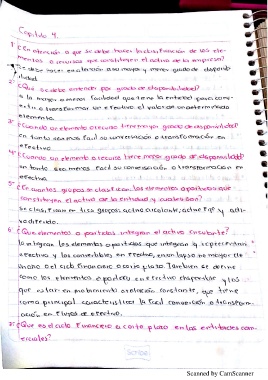 Capitulo 4.
1: ¿En atención a que se debe hacer la clasificación de los ele-
mentos o recursos que constituyen el activo de la empresa?
Se debe hacer en atención a su mayor y menor grado de disponib-
ilidad
2: ¿Qué se debe entender por grado de disponibilidad?
A la mayor o menor facilidad que tiene la entidad para conv-
ertir o transformar en efectivo el valor de un determinado
elemento.
3: ¿Cuando un elemento o recurso tiene mayor grado de disponibilidad?
En tanto sea mas facil su conversación o transformación en
efectivo
4: ¿Cuando un elemento o recurso tiene menor grado de disponibilidad?
En tanto sea menos facil su conversación o transformación en
efectivo.
5: ¿En cuantos grupos se clasifican los elementos o partidas que
constituyen el activo de la entidad y cuales son?
Se clasifican en tres grupos: activo circulante, activo fijo y acti-
vo diferido.
6: ¿Que elementos o partidas integran el activo circulante?
Lo integran los elementos o partidas que integran y representan
efectivo y los convertibles en efectivo, en un lapso no mayor de
un año o el ciclo financiero a corto plazo. Tambien se define
como los elementos o partidas en efectivo disponible y los
que estan en movimiento o rotación constante, que tiene
como principal caracteristica la facil conversión o transform-
ación en flujos de efectivo.
7: ¿Que es el ciclo financiero a corto plazo en las entidades com-
erciales?
Scribe
Scanned by CamScanner